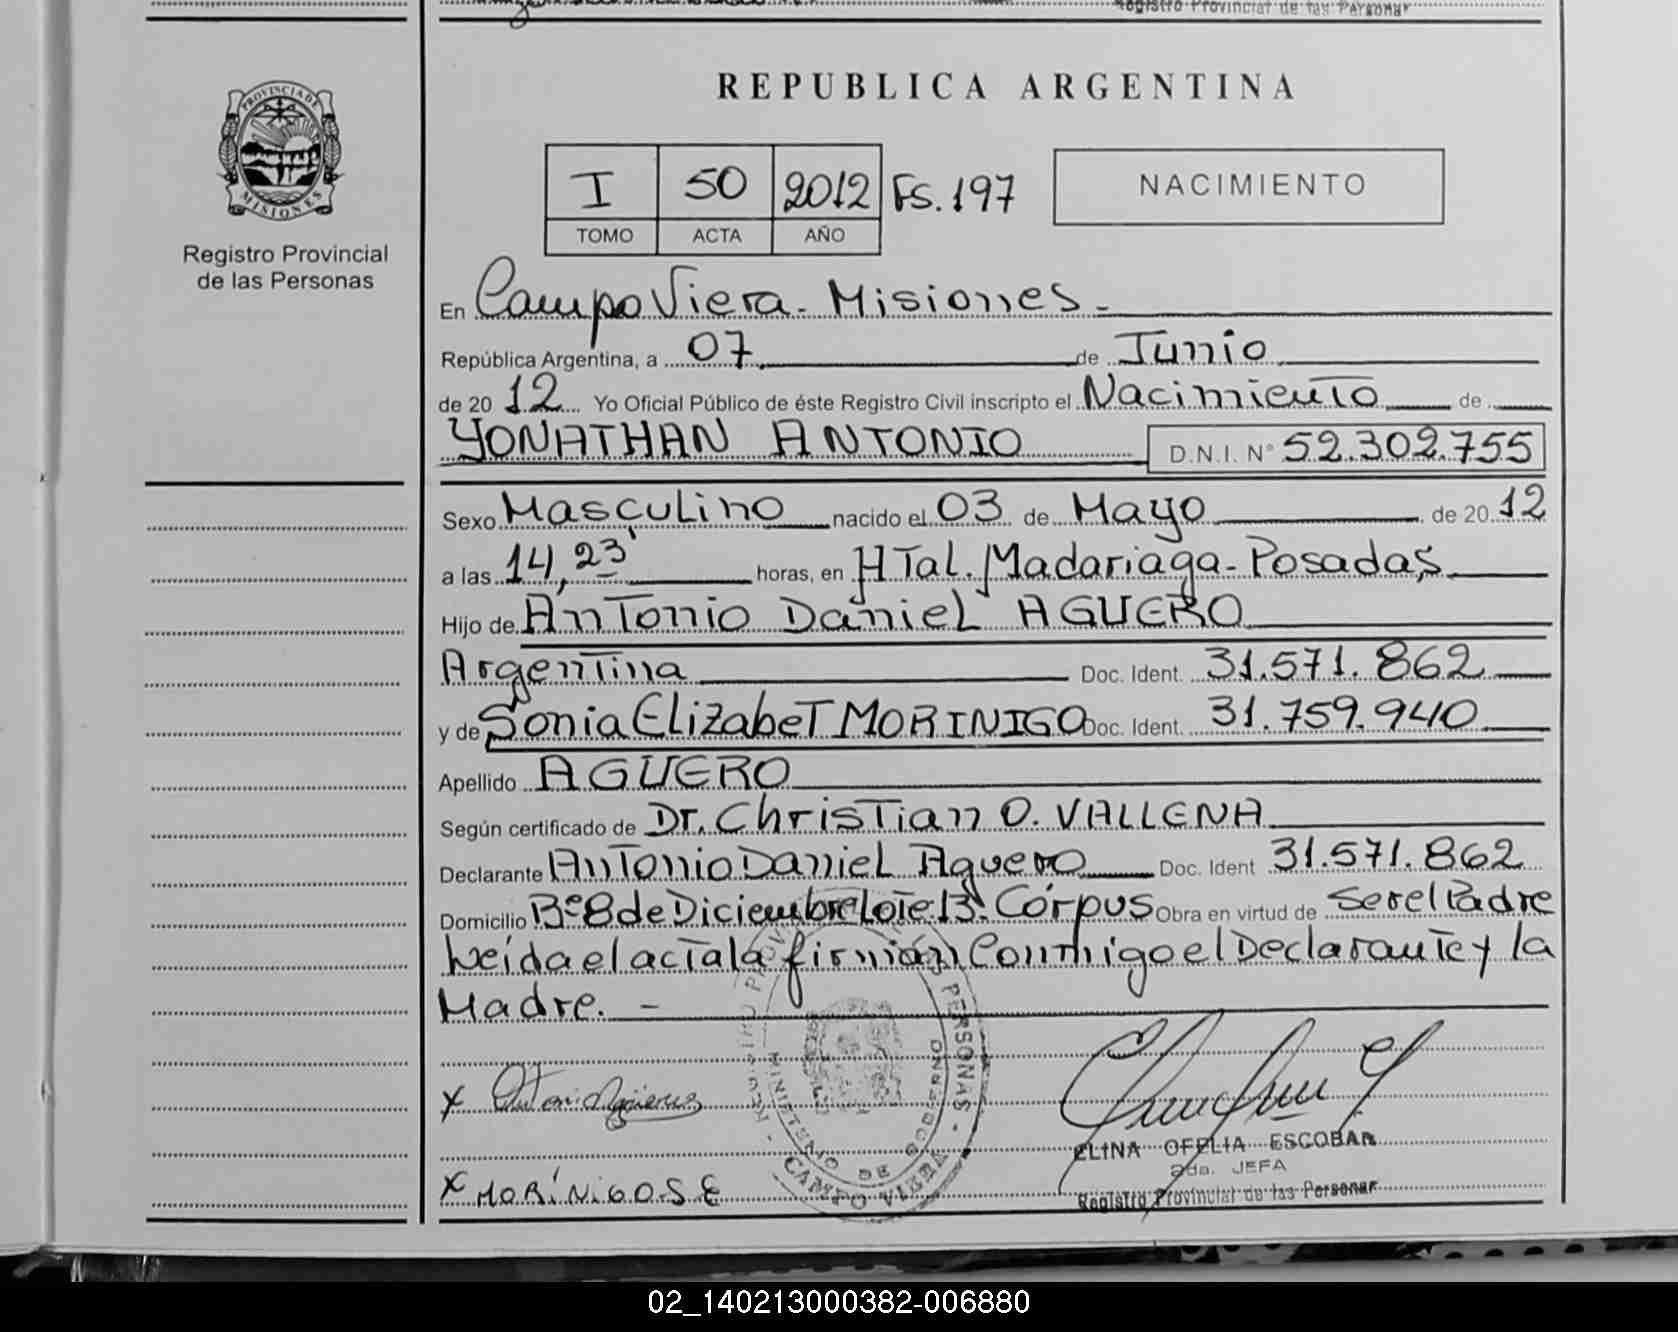 Registro Provincial de las Personas
REPUBLICA ARGENTINA
PROVINCIA DE
MISIONES
Registro Provincial
de las Personas
I 50 2012 FS. 197
TOMO ACTA AÑO
NACIMIENTO
En Campo Viera - Misiones -
República Argentina, a 07 de Junio
de 2012 Yo Oficial Público de éste Registro Civil inscripto el Nacimiento de
YONATHAN ANTONIO D.N.I. N° 52.302.755
Sexo Masculino nacido el 03 de Mayo de 2012
a las 14,23' horas, en HTal. Madariaga - Posadas
Hijo de Antonio Daniel AGUERO
Argentina Doc. Ident. 31.571.862
y de Sonia Elizabet MORINIGO Doc. Ident. 31.759.940
Apellido AGUERO
Según certificado de Dr. Christian O. VALLENA
Declarante Antonio Daniel Aguero Doc. Ident 31.571.862
Domicilio Bº 8 de Diciembre lote 13. Córpus Obra en virtud de ser el Padre
Leída el acta la firmán Conmigo el Declarante y la
Madre. -
PERSONAS -
MINISTERIO DE GOBIERNO
CAMPO VIERA
X
X MORÍNIGO S E
ELINA OFELIA ESCOBAR
2da. JEFA
Registro Provincial de las Personas
02_140213000382-006880